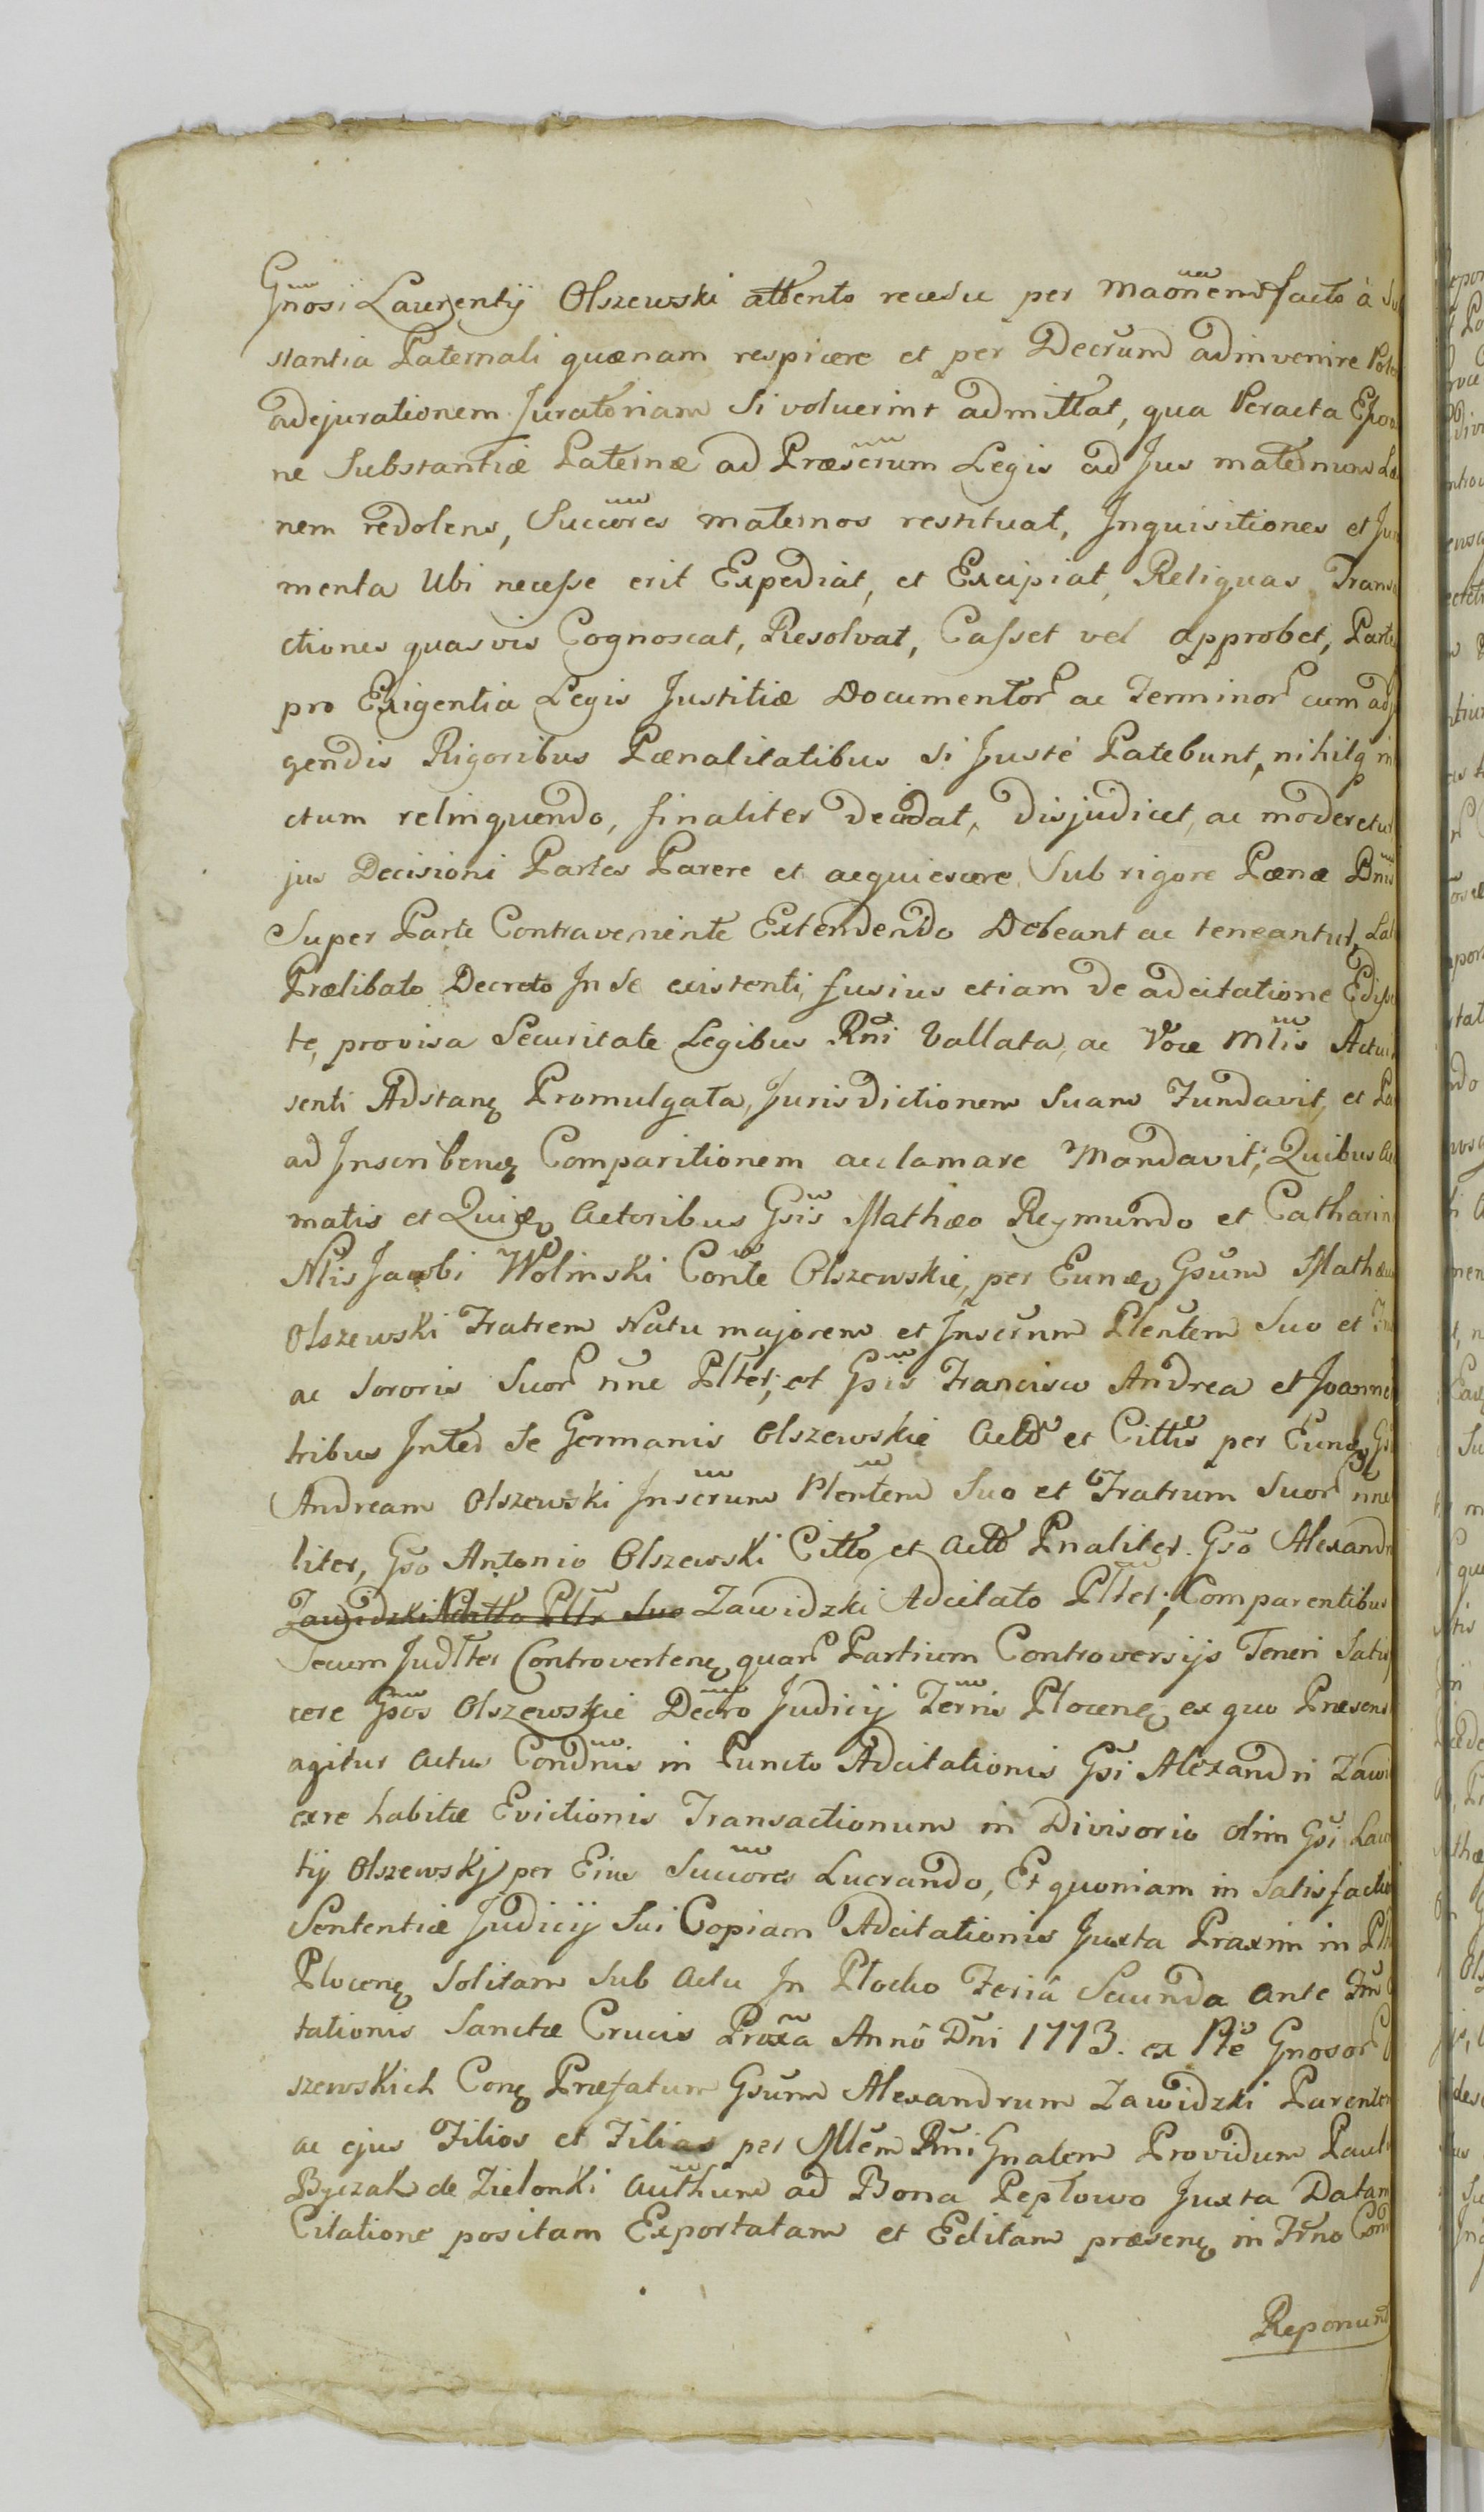 Gnosi Laurentij Olszewski attento recessu per Maōnem facto à
stantia Paternali quænam respicere et per Decrum adinvenire
adejurationem Juratoriam si voluerint admittat, qua Peracta
ne Substantiæ Paternæ ad Præscrum Legis ad Jus maternum
nem redolens, Succores maternos restituat, Inquisitiones et
menta Ubi necesse erit Expediat, et Excipiat, Reliquas Trans
ctiones quasvis Cognoscat, Resolvat, Casset vel approbet, Parte
pro Exigentia Legis Justitiæ Documentor ac Terminor cum ad
gendis Rigoribus Pænalitatibus si Justè Patebunt, nihilq in
ctum relinquendo, finaliter decidat, disjudicet, ac moderetur
jus Decisioni Partes Parere et acquiescere Sub rigore Pænæ Bnis
Super Parte Contraveniente Extendendo Debeant ac teneantur,
Prælibato Decreto In se existenti, fusius etiam de adcitatione
te, provisa Securitate Legibus Rni Vallata, ac Voce Mlis
senti Adstanę Promulgata, Jurisdictionem Suam Fundavit, et
ad Inscribenę Comparitionem acclamare Mandavit; Quibus
matis et Quidę Actoribus Gsis Mathæo Reymundo et Catharin
Nlis Jacobi Wolinski Conte Olszewskie, per Eundę Gsum Mathæu
Olszewski Fratrem Natu majorem et Inscrum Plentem Suo et
ac Sororis Suor nne Plter; et Gsis Francisco Andrea et Joanne
tribus Inter se Germanis Olszewskie Actt et Cittis per Eundę
Andream Olszewski Inscrum Plentem Suo et Fratrum Suor nne
liter, Gso Antonio Olszewski Citto et Actt Pnaliter. Gso Alexandr
Zawidzki Adcitato Plter; Comparentibus
Secum Judlter Controvertenę quar Partium Controversijs Teneri Satis
cere Gsos Olszewskie Decro Judicij Terris Plocenę ex quo Præsens
agitur actus Condnis in Puncto Adcitationis Gsi Alexandri Zawi
exre habitæ Evictionis Transactionum in Divisorio olim Gsi Law
tij Olszewskj per Eius Succores Lucrando, Et quoniam in Satisfactio
Sententiæ Judicij Sui Copiam Adcitationis Juxta Praxim in
Plocenę Solitam Sub Actu In Płocko Feriâ Secunda ante
tationis Sanctæ Crucis Proxa Annô Dni 1773. ex Pte Gnosor
szewskich Conę Præfatum Gsum Alexandrum Zawidzki Parentem
ac ejus Filios et Filias per Mlem Rni Gnalem Providum Paul
Byczak de Zielonki Authum ad Bona Pepłowo Juxta Datam
Citatione positam Exportatam et Editam præsenę in Trno
Reponunt